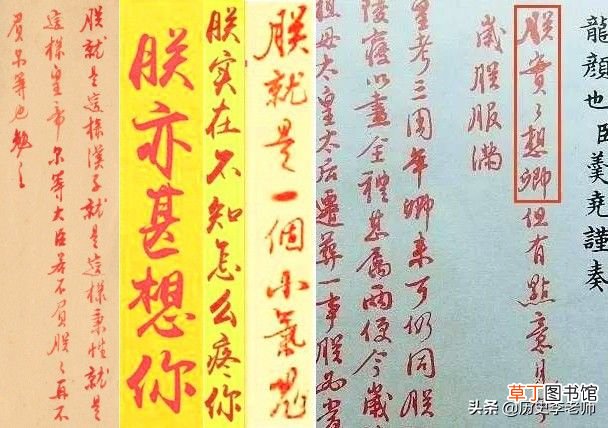 龍顏也臣羹堯謹奏
朕實〻想卿但有點意
歲朕服滿
皇考三周年卿來可仍同朕
陵寢以盡全禮甚屬兩便今歲
祖母太皇太后遷葬一事朕
朕就是一個小氣鬼
朕实在不知怎么疼你
朕亦甚想你
朕就是這樣漢子就是這樣秉性就是
這樣皇帝爾等大臣若不負朕〻再不
負尔等也勉之
草丁图书馆
头条 @历史李老师